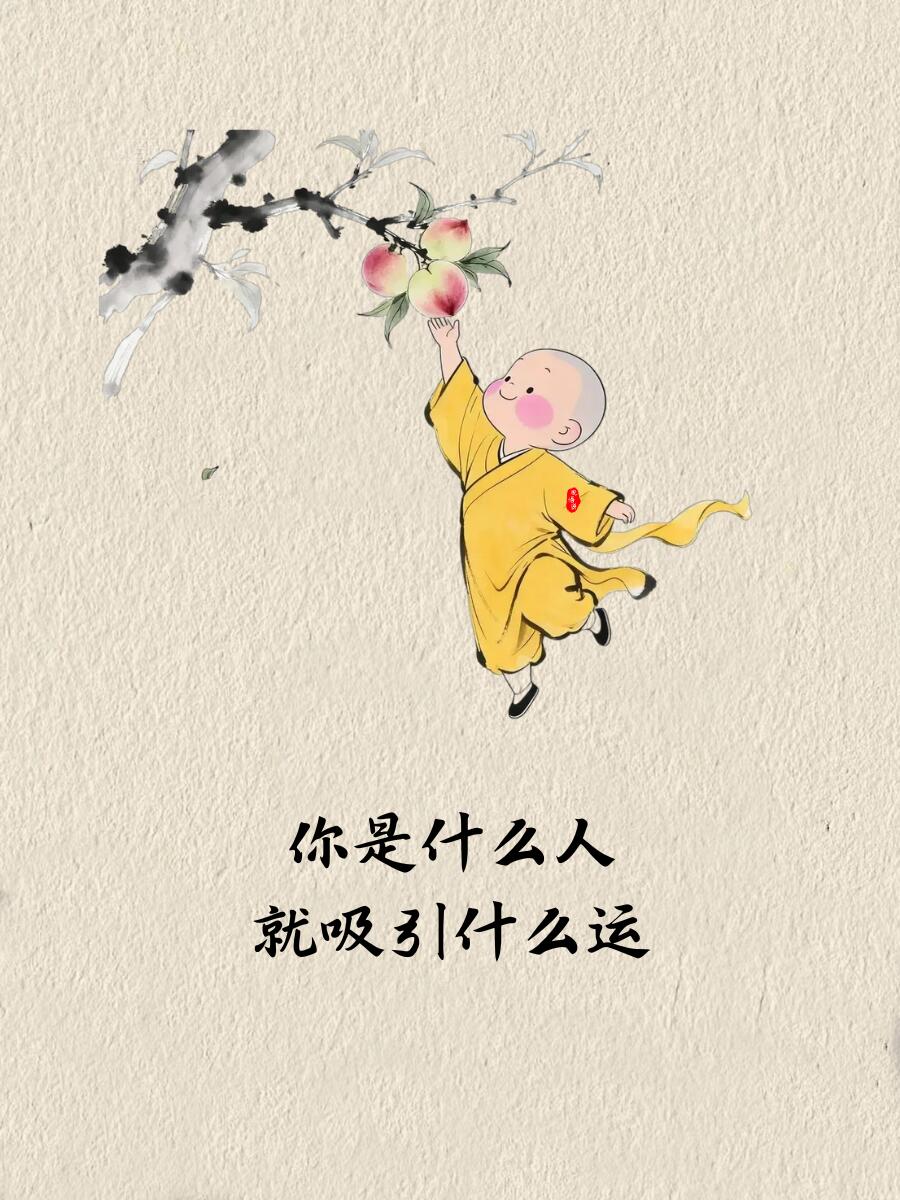 你是什么人
就吸引什么运